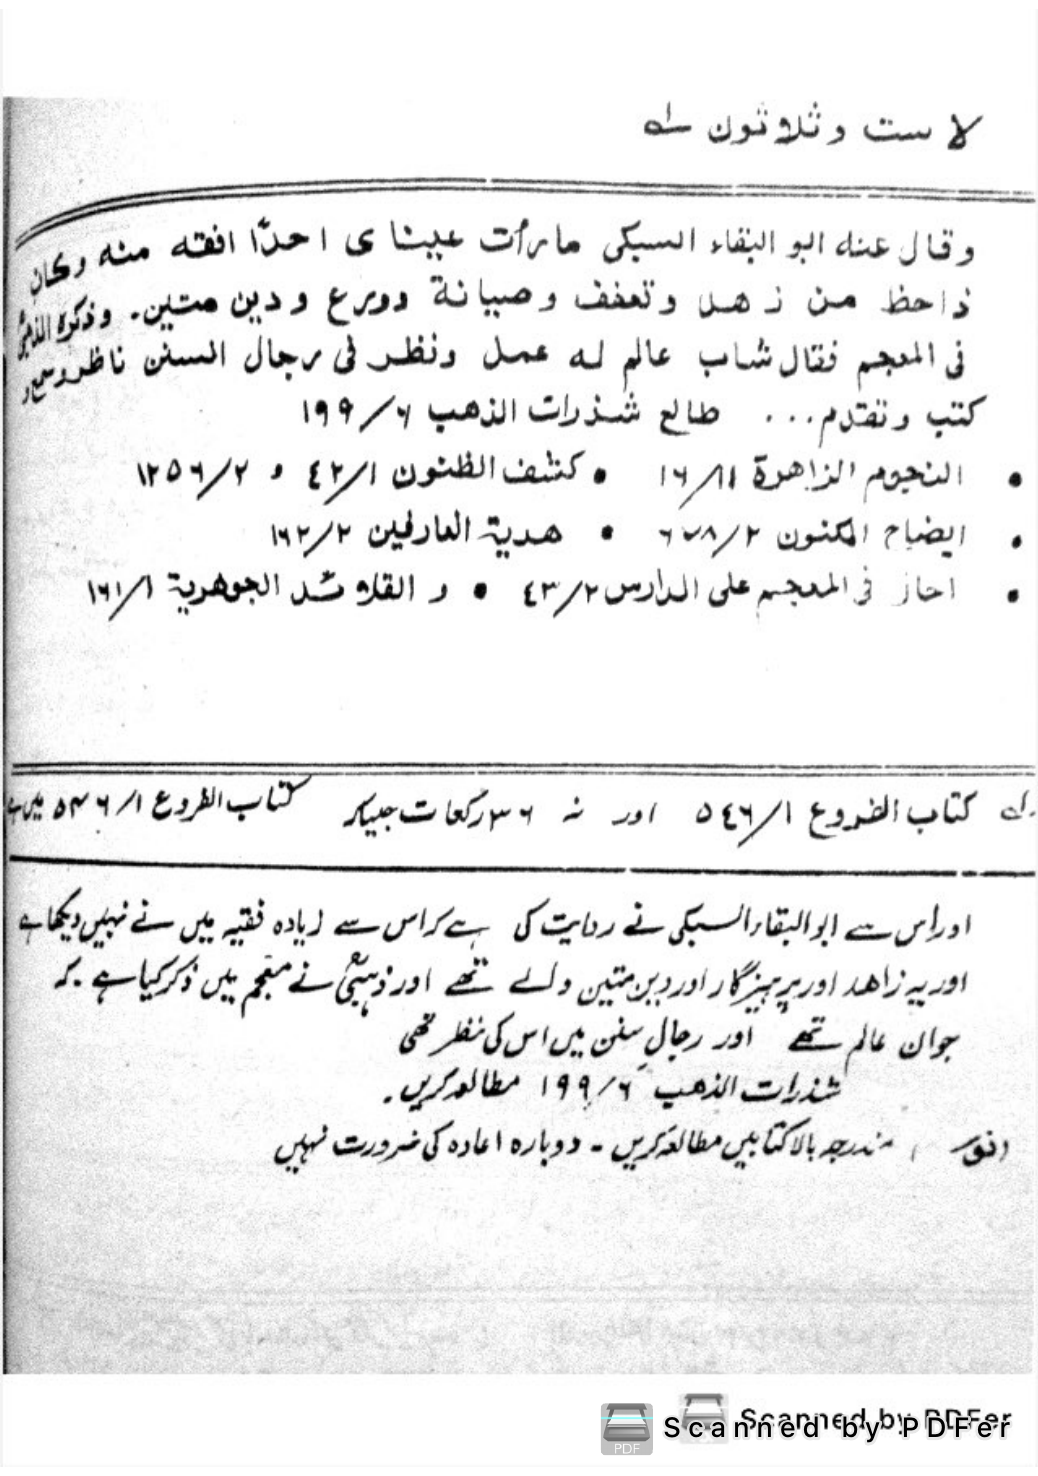 لا ست و ثلاثون لہ
وقال عنه ابو البقاء السبكى ما رأت عينا ى احدًا افقه منه وكان
ذا حظ من زهد وتعفف وصيانة وورع ودين متين۔ وذكره الذهبىؒ
فى المعجم فقال شاب عالم له عمل ونظر فى رجال السنن ناظر وسمع و
كتب وتقدم... طالع شذرات الذهب ٦/١٩٩
• النجوم الزاهرة ١١/١٦ • كشف الظنون ١/٤٢ و ٢/١٢٥٦
• ايضاح المكنون ٢/٦٧٨ • هدية العارفين ٢/١٦٢
• احاز فى المعجم على الدارس ٢/٤٣ • و القلائد الجوهرية ١/١٦١
لہ كتاب الفروع ١/٥٤٦ اور نہ ٣٦ رکعات جیساکہ کتاب الفروع ١/٥٣٦ میں ہے
اور اس سے ابو البقاء السبکی نے روایت کی ہے کہ اس سے زیادہ فقیہ میں نے نہیں دیکھا ہے
اور یہ زاھد اور پرہیزگار اور دین متین والے تھے اور ذہبیؒ نے معجم میں ذکر کیا ہے۔ کہ
جوان عالم تھے اور رجالِ سنن میں اس کی نظر تھی
شذرات الذھب ٦/١٩٩ مطالعہ کریں۔
(نوٹ) مندرجہ بالا کتابیں مطالعہ کریں۔ دوبارہ اعادہ کی ضرورت نہیں
Scanned by PDFer
Scanned by PDFer
PDF